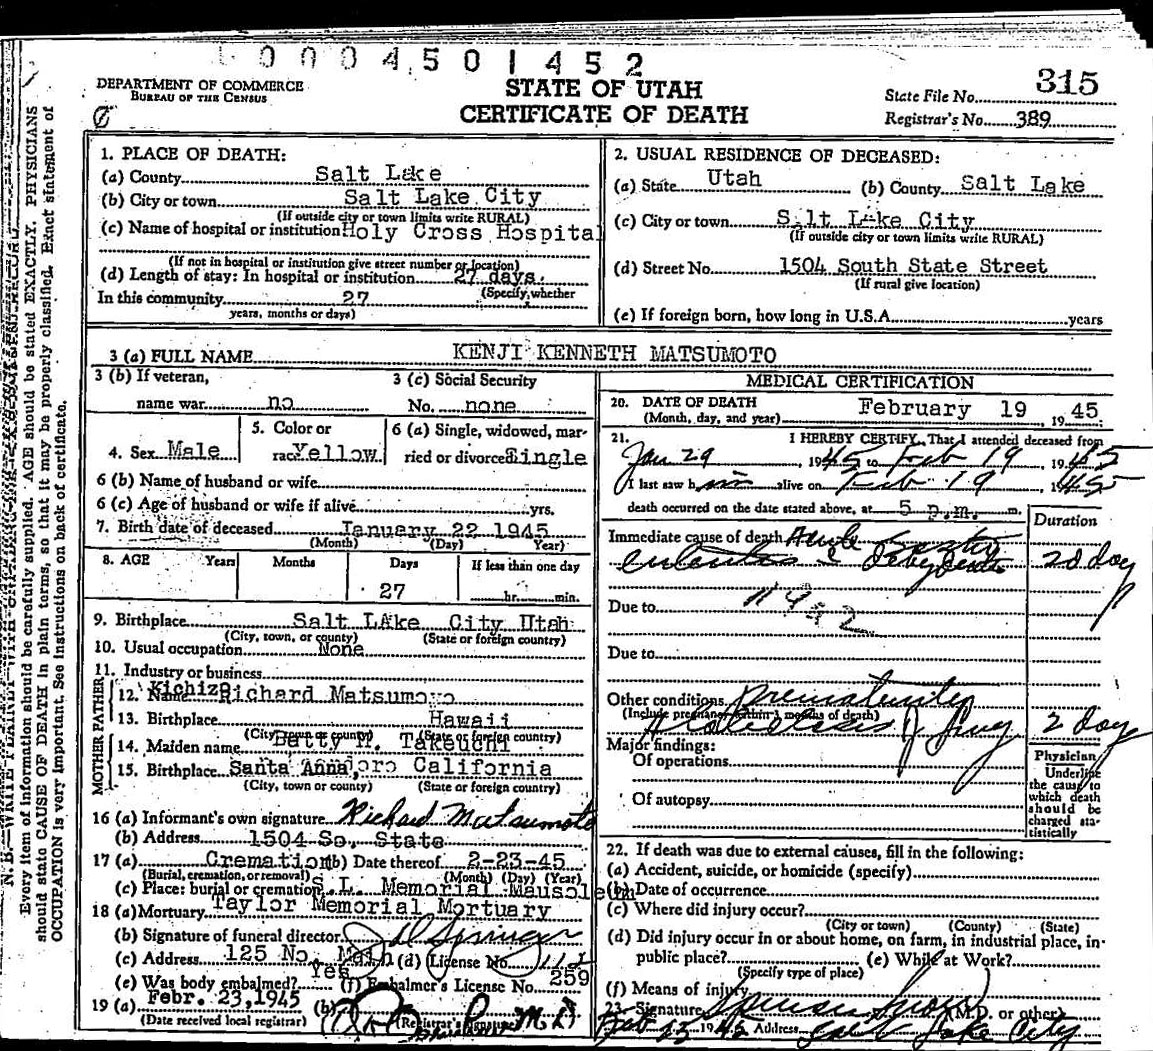 0004501452
DEPARTMENT OF COMMERCE
BUREAU OF THE CENSUS
STATE OF UTAH
CERTIFICATE OF DEATH
State File No. 315
Registrar's No. 389
N. B.—WRITE PLAINLY WITH
Every item of information should be carefully supplied. AGE should be stated EXACTLY. PHYSICIANS
should state CAUSE OF DEATH in plain terms, so that it may be properly classified. Exact statement of
OCCUPATION is very important. See instructions on back of certificate.
1. PLACE OF DEATH:
(a) County Salt Lake
(b) City or town Salt Lake City
(If outside city or town limits write RURAL)
(c) Name of hospital or institution Holy Cross Hospital
(If not in hospital or institution give street number or location)
(d) Length of stay: In hospital or institution 27 days.
(Specify whether
In this community 27
years, months or days)
2. USUAL RESIDENCE OF DECEASED:
(a) State Utah (b) County Salt Lake
(c) City or town Salt Lake City
(If outside city or town limits write RURAL)
(d) Street No. 1504 South State Street
(If rural give location)
(e) If foreign born, how long in U.S.A. years
3 (a) FULL NAME KENJI KENNETH MATSUMOTO
3 (b) If veteran,
name war no
3 (c) Social Security
No. none
4. Sex Male
5. Color or
race Yellow
6 (a) Single, widowed, mar-
ried or divorced Single
6 (b) Name of husband or wife
6 (c) Age of husband or wife if alive yrs.
7. Birth date of deceased January 22 1945
(Month) (Day) Year)
8. AGE Years Months Days If less than one day
27 hr. min.
9. Birthplace Salt LAke City Utah
(City, town, or county) (State or foreign country)
10. Usual occupation None
11. Industry or business
FATHER
12. Name Kichizo Richard Matsumoyo
13. Birthplace Hawaii
(City, town or county) (State or foreign country)
MOTHER
14. Maiden name Betty M. Takeuchi
15. Birthplace Santa Anna, California
(City, town or county) (State or foreign country)
16 (a) Informant's own signature Richard Matsumoto
(b) Address 1504 So. State
17 (a) Cremation (b) Date thereof 2-23-45
(Burial, cremation, or removal) (Month) (Day) (Year)
(c) Place: burial or cremation S.L. Memorial Mausoleum
18 (a) Mortuary Taylor Memorial Mortuary
(b) Signature of funeral director
(c) Address 125 No. Main (d) License No.
(e) Was body embalmed? Yes (f) Embalmer's License No. 259
19 (a) Febr. 23, 1945 (b) M.D.
(Date received local registrar) (Registrar's signature)
MEDICAL CERTIFICATION
20. DATE OF DEATH
(Month, day, and year) February 19 1945
21. I HEREBY CERTIFY, That I attended deceased from
Jan 29, 1945 to Feb 19 1945
I last saw him alive on Feb 19 1945
death occurred on the date stated above, at 5 p.m. m.
Duration
Immediate cause of death Acute Gastro
enteritis & dehydration 20 day
Due to
Due to
Other conditions prematurity
(Include pregnancy within 3 months of death)
Atelectasis of lung 2 day
Major findings:
Of operations
Of autopsy
Physician
Underline
the cause to
which death
should be
charged sta-
tistically
22. If death was due to external causes, fill in the following:
(a) Accident, suicide, or homicide (specify)
(b) Date of occurrence
(c) Where did injury occur?
(City or town) (County) (State)
(d) Did injury occur in or about home, on farm, in industrial place, in-
public place? (e) While at Work?
(Specify type of place)
(f) Means of injury
23. Signature (M.D. or other)
Feb 23 1945 Address Salt Lake City